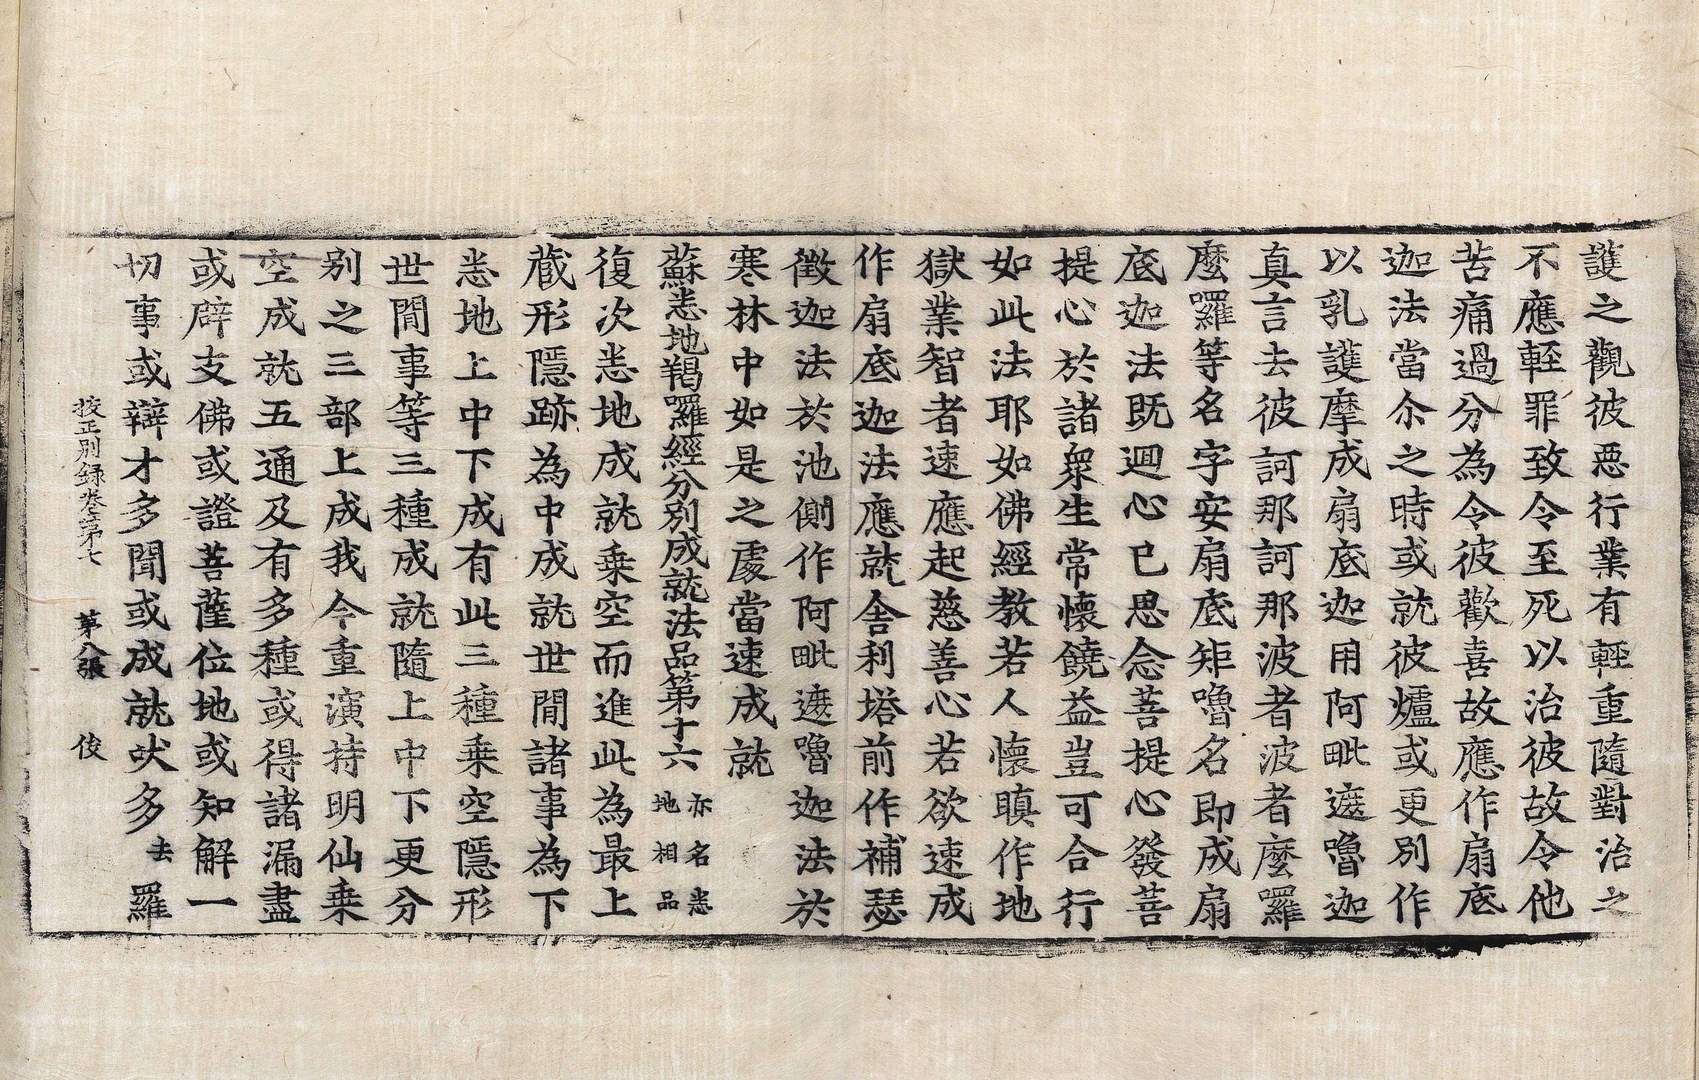 護之觀彼惡行業有輕重隨對治之
不應輕罪致令至死以治彼故令他
苦痛過分為令彼歡喜故應作扇底
迦法當尒之時或就彼爐或更別作
以乳護摩成扇底迦用阿毗遮嚕迦
真言去彼訶那訶那波者波者麼囉
麼囉等名字安扇底矩嚕名即成扇
底迦法既迴心已思念菩提心發菩
提心於諸衆生常懷饒益豈可合行
如此法耶如佛經教若人懷瞋作地
獄業智者速應起慈善心若欲速成
作扇底迦法應就舎利塔前作補瑟
徵迦法於池側作阿毗遮嚕迦法於
寒林中如是之處當速成就
蘇悉地羯囉經分別成就法品第十六 亦名悉地相品
復次悉地成就乗空而進此為最上
藏形隱跡為中成就世間諸事為下
悉地上中下成有此三種乗空隱形
世間事等三種成就隨上中下更分
別之三部上成我今重演持明仙乗
空成就五通及有多種或得諸漏盡
或辟支佛或證菩薩位地或知解一
切事或辯才多聞或成就吠多 去 羅
挍正別録卷第七 第八張 俊